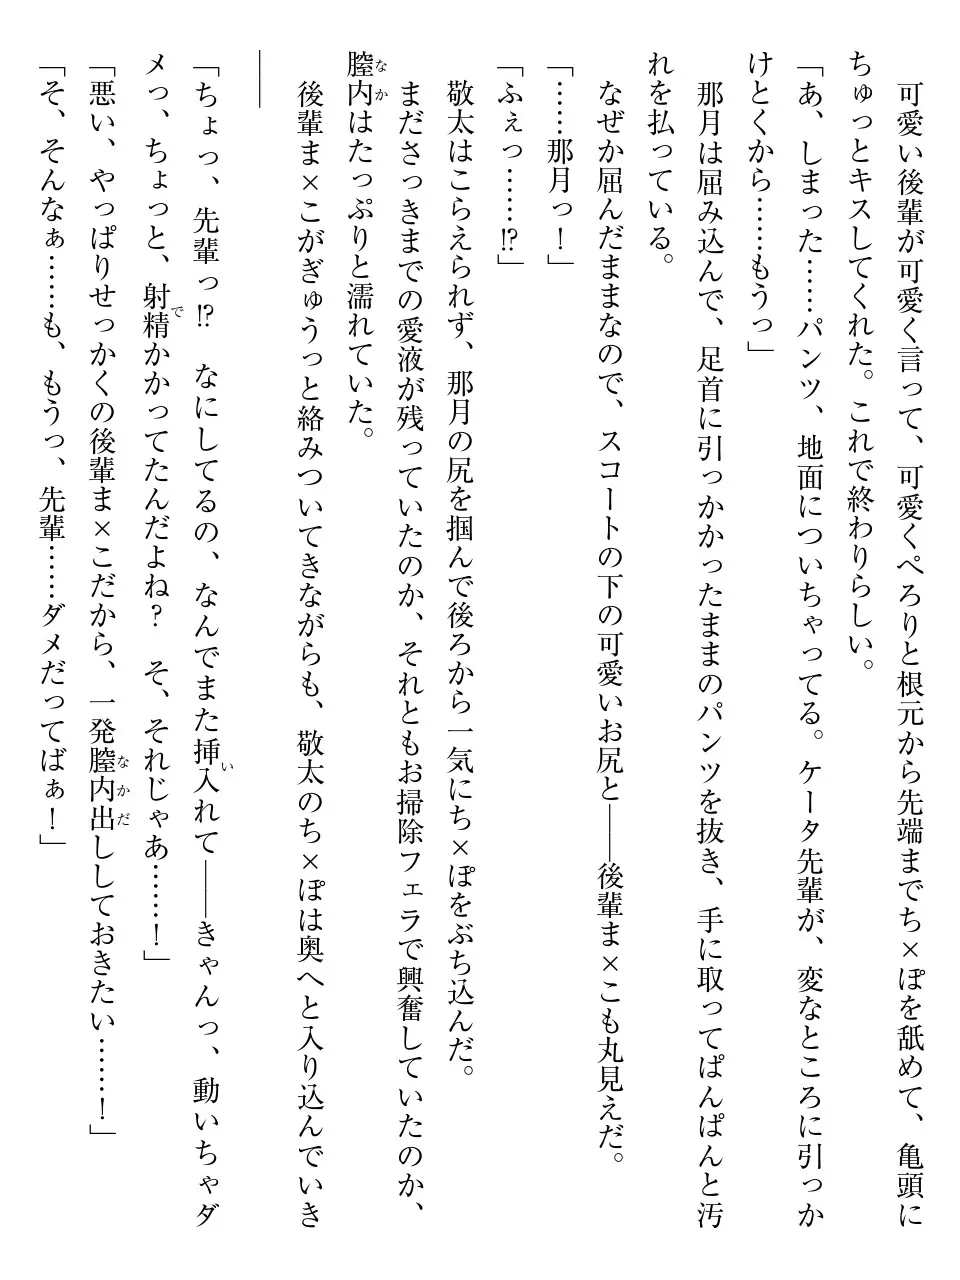 可愛い後輩が可愛く言って、可愛くぺろりと根元から先端までち×ぽを舐めて、亀頭に
ちゅっとキスしてくれた。これで終わりらしい。
「あ、しまった……パンツ、地面についちゃってる。ケータ先輩が、変なところに引っか
けとくから……もうっ」
　那月は屈み込んで、足首に引っかかったままのパンツを抜き、手に取ってぱんぱんと汚
れを払っている。
　なぜか屈んだままなので、スコートの下の可愛いお尻と――後輩ま×こも丸見えだ。
「……那月っ！」
「ふぇっ……⁉」
　敬太はこらえられず、那月の尻を掴んで後ろから一気にち×ぽをぶち込んだ。
　まださっきまでの愛液が残っていたのか、それともお掃除フェラで興奮していたのか、
膣内はたっぷりと濡れていた。
　後輩ま×こがぎゅうっと絡みついてきながらも、敬太のち×ぽは奥へと入り込んでいき
――
「ちょっ、先輩っ⁉　なにしてるの、なんでまた挿入れて――きゃんっ、動いちゃダ
メっ、ちょっと、射精かかってたんだよね？　そ、それじゃあ……！」
「悪い、やっぱりせっかくの後輩ま×こだから、一発膣内出ししておきたい……！」
「そ、そんなぁ……も、もうっ、先輩……ダメだってばぁ！」